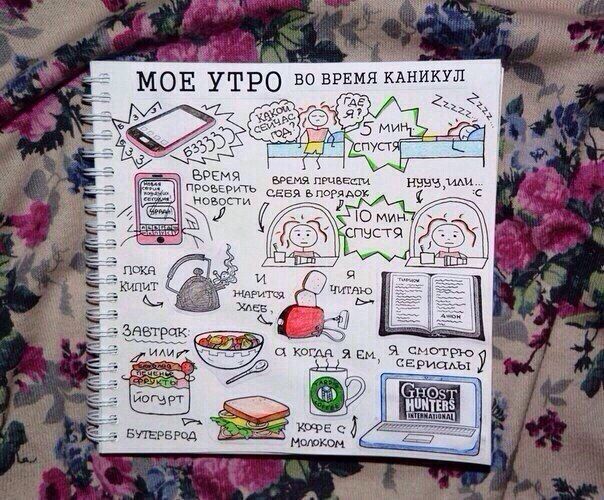 МОЕ УТРО ВО ВРЕМЯ КАНИКУЛ
БЗЗЗЗЗ
КАКОЙ
СЕЙЧАС
ГОД?
ГДЕ
Я?
5 МИН.
СПУСТЯ
ZZZZZ...
ZZZZ...
ВРЕМЯ
ПРОВЕРИТЬ
НОВОСТИ
НОВАЯ
СЕРИЯ
СЕГОДНЯ
УРА!!!
ВРЕМЯ ПРИВЕСТИ
СЕБЯ В ПОРЯДОК
10 МИН.
СПУСТЯ
НУУУ, ИЛИ...
:С
ПОКА
КИПИТ
И
ЖАРИТСЯ
ХЛЕБ,
Я
ЧИТАЮ
ЗАВТРАК:
ИЛИ
ШОКОЛАД
ПЕЧЕНЬЕ
ФРУКТЫ
ЙОГУРТ
БУТЕРБРОД
А КОГДА Я ЕМ,
КОФЕ С
МОЛОКОМ
Я СМОТРЮ
СЕРИАЛЫ
GHOST
HUNTERS
INTERNATIONAL